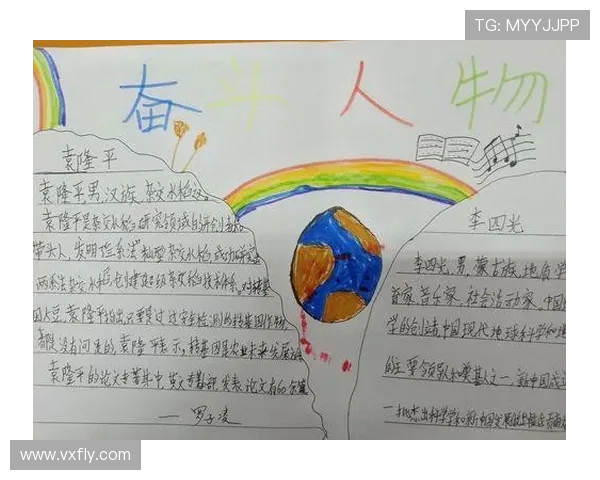 TG: MYYJJPP
奋斗人物
袁隆平
袁隆平男,汉族,杂交水稻
袁隆平是杂交水稻研究领域的开创者和
带头人,发明"三系法"籼型杂交水稻,成功研究
两系法杂交水稻,创建超级杂交稻技术体系。
国大豆,袁隆平指出,只要是过安全检测的转基因作物
没有问题的,袁隆平表示,转基因是农业未来发展
袁隆平的论文专著集中英文专著,发表论文有60余篇
李四光
李四光,男,蒙古族,地质学
音乐家,社会活动家,中国
学的创造,中国现代地球科学和地
的主要领导人和奠基人之一,新中国成
一批杰出科学家和新中国发展
www.vxfly.com